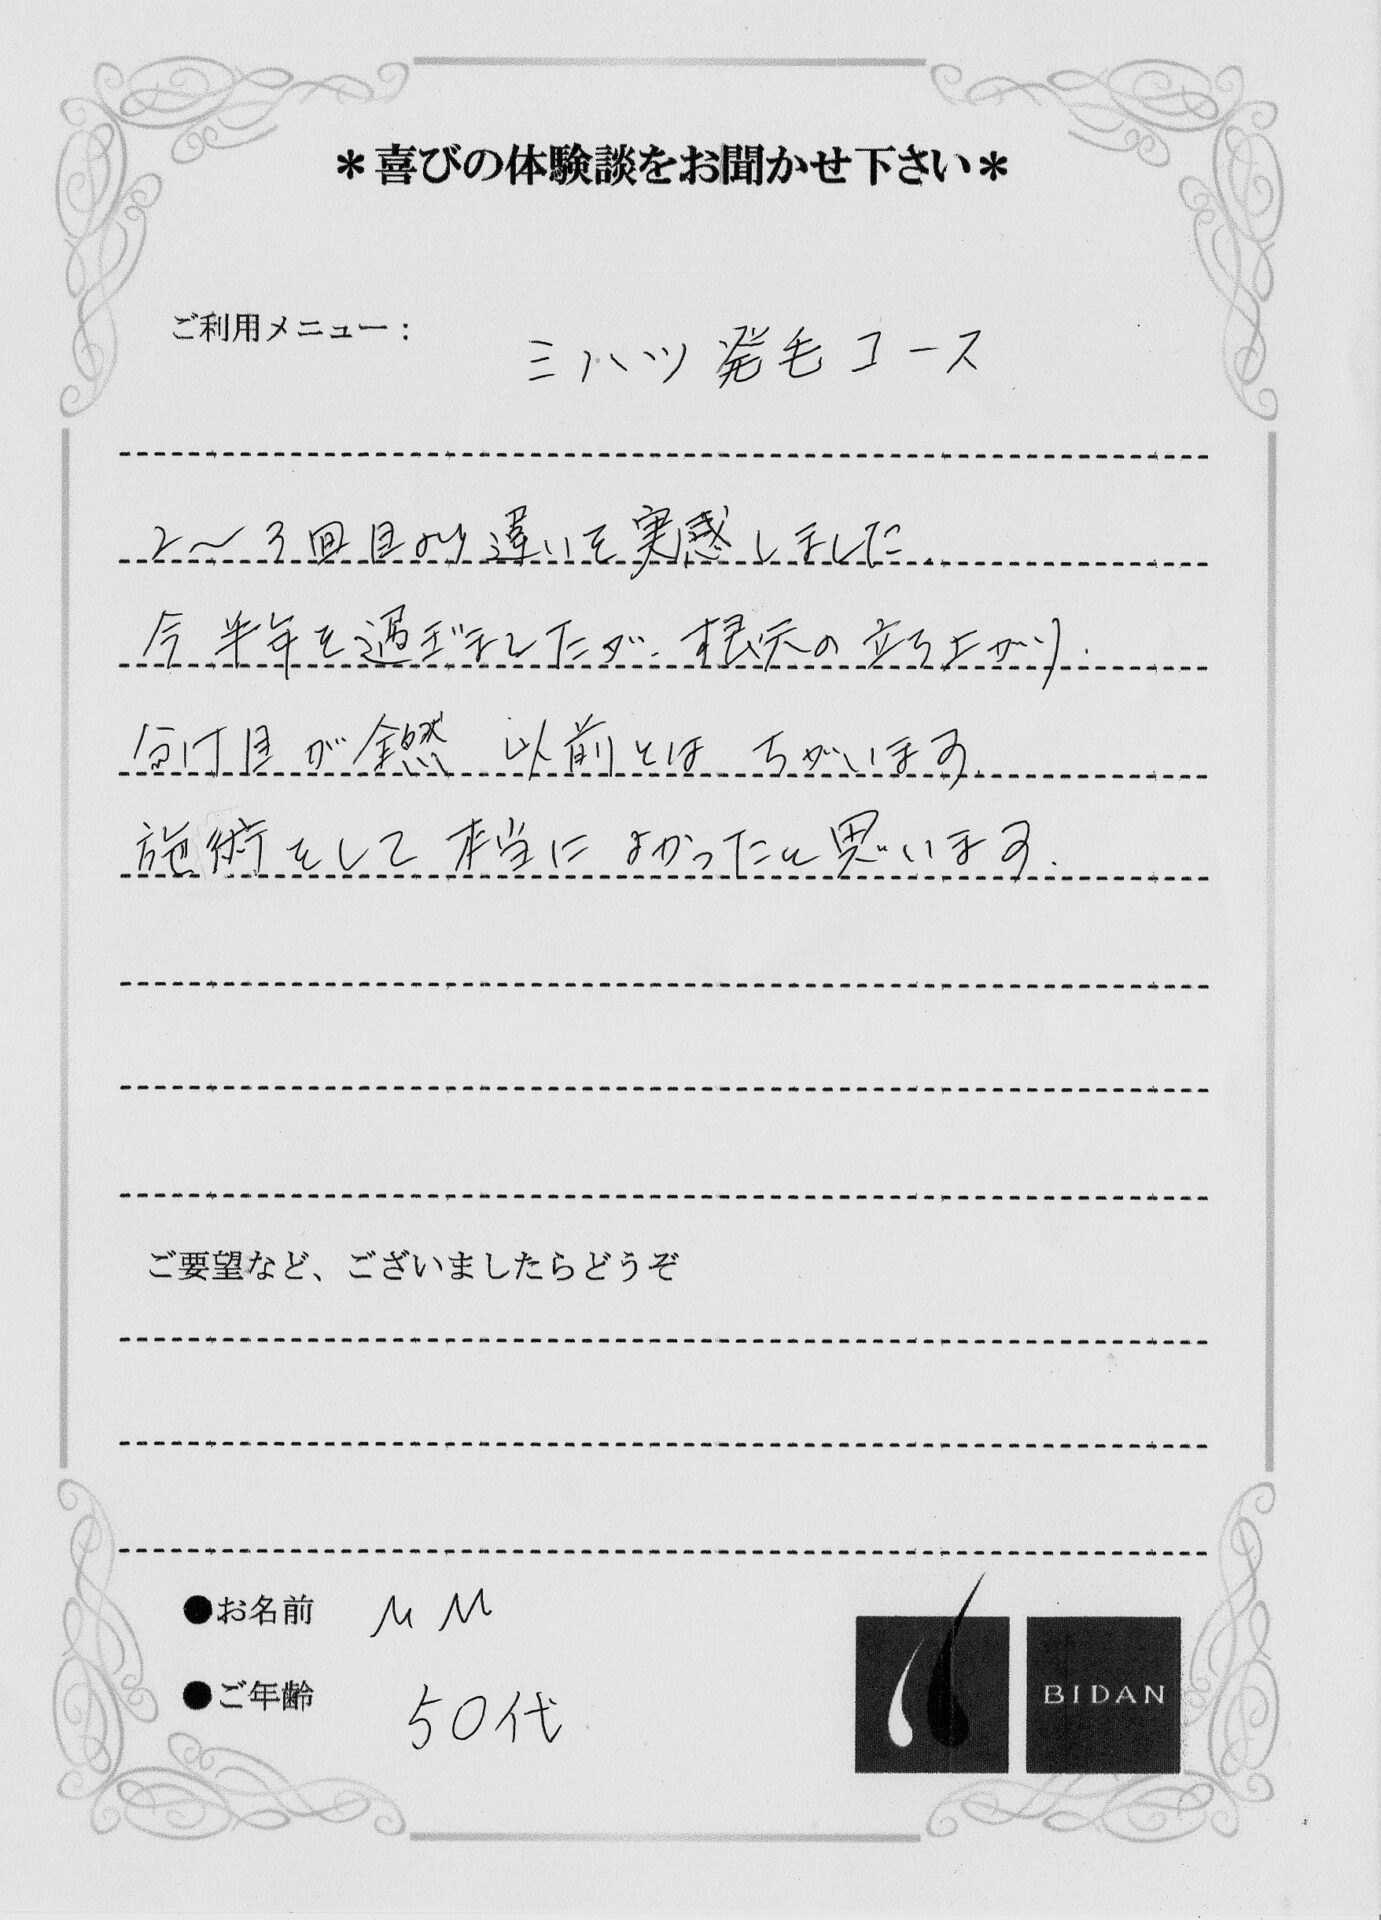 ＊喜びの体験談をお聞かせ下さい＊
ご利用メニュー： ミハツ発毛コース
2〜3回目より違いを実感しました.
今半年を過ぎましたが、根元の立ち上がり.
分け目が全然 以前とは ちがいます.
施術をして本当に よかったと思います.
ご要望など、ございましたらどうぞ
●お名前 M M
●ご年齢 50代
BIDAN